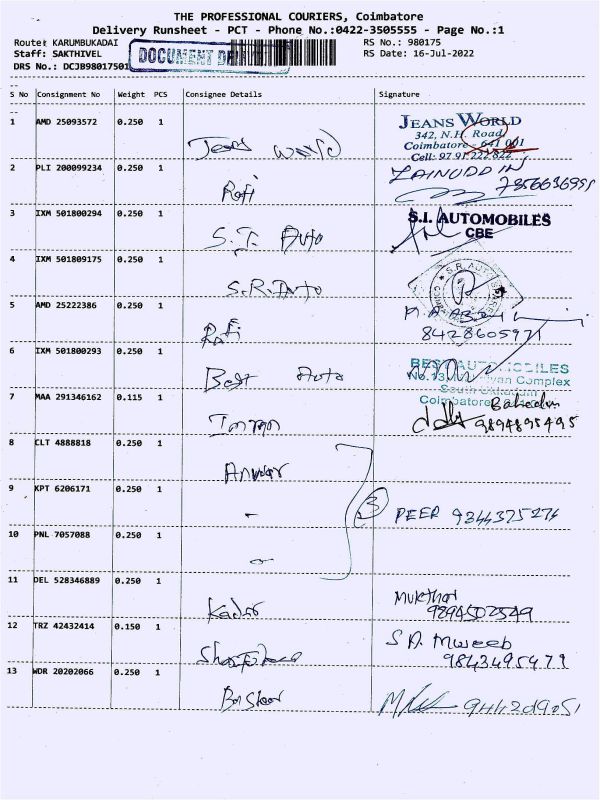 THE PROFESSIONAL COURIERS, Coimbatore
Delivery Runsheet - PCT - Phone No.:0422-3505555 - Page No.:1
Route: KARUMBUKADAI RS No.: 980175
Staff: SAKTHIVEL DOCUMENT RS Date: 16-Jul-2022
DRS No.: DCJB98017501
S No Consignment No Weight PCS Consignee Details Signature
1 AMD 25093572 0.250 1 Jeans World JEANS WORLD
342, N.H. Road
Coimbatore - 641 001
Cell: 97 91 222 822
2 PLI 200099234 0.250 1 Rafi ZAINUDDIN
7356636995
3 IXM 501800294 0.250 1 S.I. Auto S.I. AUTOMOBILES
CBE
4 IXM 501809175 0.250 1 S.R. Auto S.R. AUTO
5 AMD 25222386 0.250 1 Rafi
8428605971
6 IXM 501800293 0.250 1 Best Auto BEST AUTOMOBILES
No.13, Complex
South Ukkadam
Coimbatore
7 MAA 291346162 0.115 1 Imran
9894895495
8 CLT 4888818 0.250 1 Anwar
9 KPT 6206171 0.250 1 - 3 PEER 9344375276
10 PNL 7057088 0.250 1 -
11 DEL 528346889 0.250 1 Kader Mukthar
9894502549
12 TRZ 42432414 0.150 1 S A. Mweeb
9843495479
13 WDR 20202066 0.250 1 Baskar